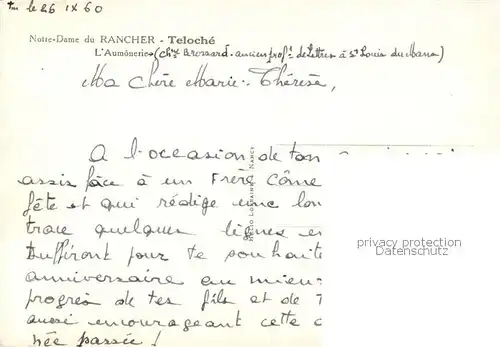 le 26 IX 60
Notre-Dame du RANCHER - Teloché
L'Aumônerie (Chne Brossard - ancien prof. de Lettres à St Louis du Mans)
Ma chère Marie-Thérèse,
A l'occasion de ton
assis face à un Frère Côme
fête et qui rédige une lon
trace quelques lignes
suffiront pour te souhaite
anniversaire au mieux
progrès de tes fils et de
aussi encourageant cette
née passée !
privacy protection
Datenschutz